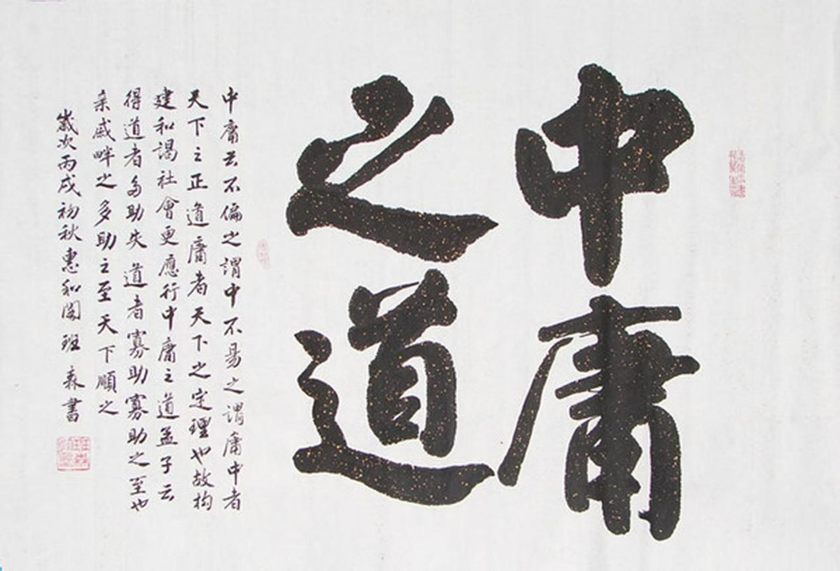 中庸
之道
中庸云不偏之謂中不易之謂庸中者
天下之正道庸者天下之定理也故构
建和謁社會更應行中庸之道孟子云
得道者多助失道者寡助寡助之至也
亲戚畔之多助之至天下順之
歲次丙戌初秋惠和閣班森書